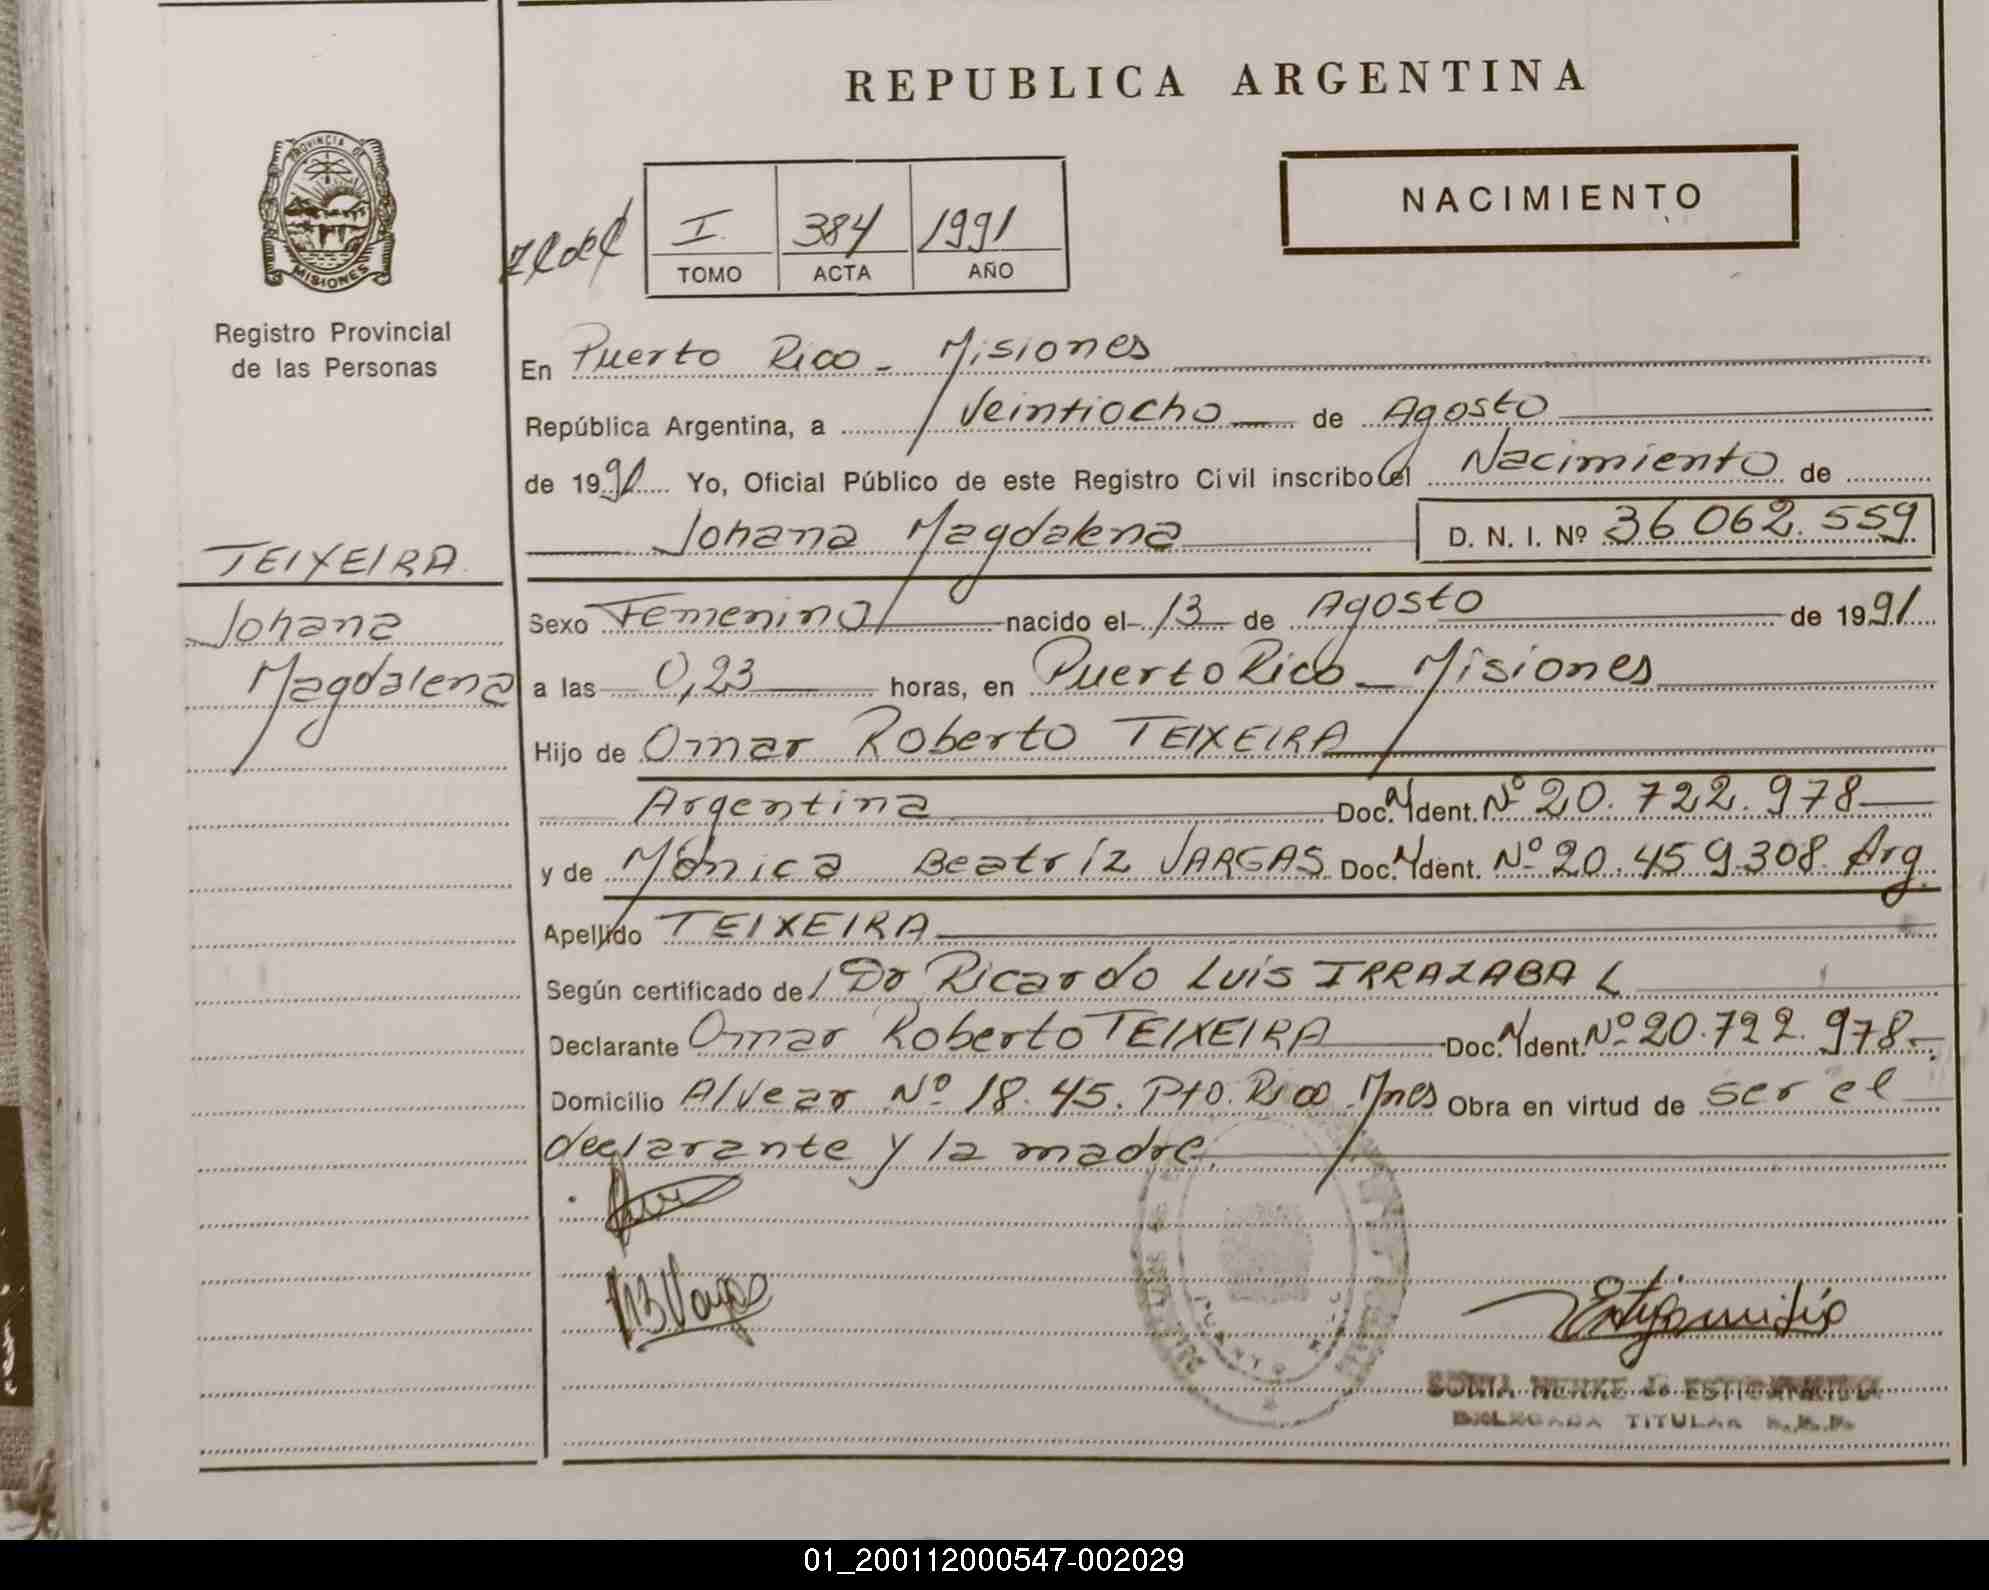 REPUBLICA ARGENTINA
PROVINCIA DE
MISIONES
Registro Provincial
de las Personas
NACIMIENTO
I. 384 1991
TOMO ACTA AÑO
En Puerto Rico - Misiones
República Argentina, a Veintiocho de Agosto
de 1991 Yo, Oficial Público de este Registro Civil inscribo el Nacimiento de
Johana Magdalena D. N. I. Nº 36 062.559
TEIXEIRA
Johana
Magdalena
Sexo Femenino nacido el 13 de Agosto de 1991
a las 0,23 horas, en Puerto Rico - Misiones
Hijo de Omar Roberto TEIXEIRA
Argentina Doc. Ident. Nº 20.722.978
y de Mónica Beatríz VARGAS Doc. Ident. Nº 20.459.308 Arg.
Apellido TEIXEIRA
Según certificado de Dr Ricardo Luis IRRAZABAL
Declarante Omar Roberto TEIXEIRA Doc. Ident. Nº 20.722.978-
Domicilio Alvear Nº 18.45. Pto. Rico Mnes Obra en virtud de ser el
declarante y la madre.
PUERTO RICO
SONIA MENKE de ESTIGARRIBIA
DELEGADA TITULAR R.P.P.
01_200112000547-002029